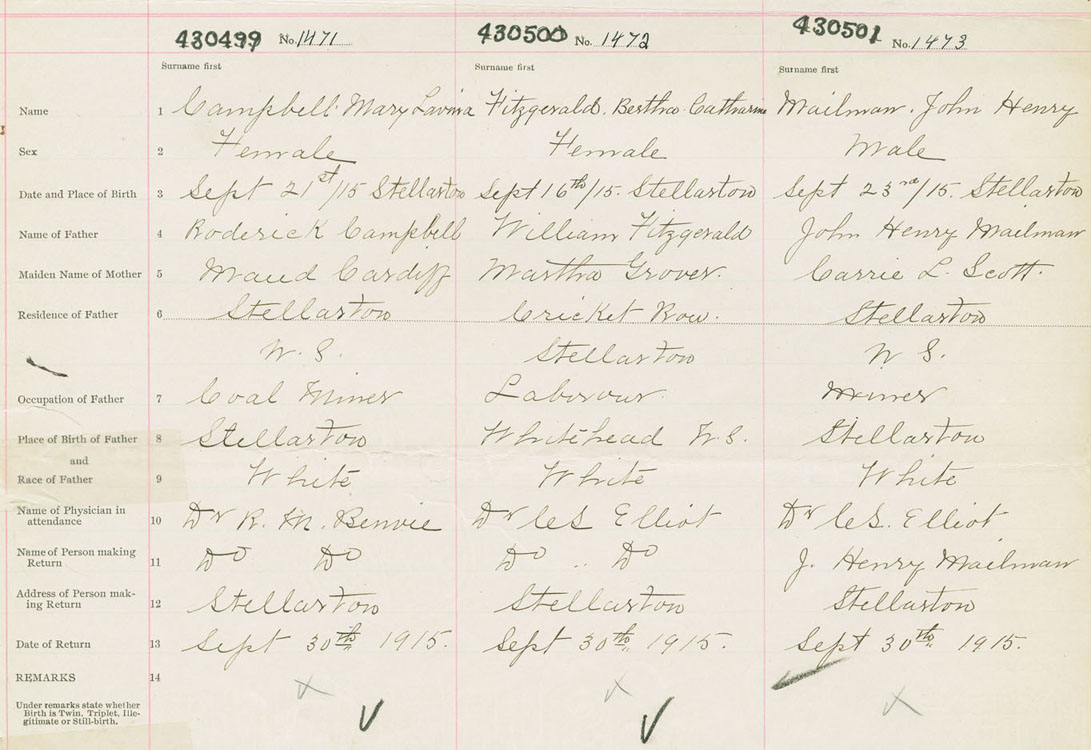 430499 No. 1471 430500 No. 1472 430501 No. 1473
Surname first Surname first Surname first
Name 1 Campbell Mary Lavina Fitzgerald. Bertha Catharine Mailman. John Henry
Sex 2 Female Female Male
Date and Place of Birth 3 Sept 21st/15 Stellarton Sept 16th/15. Stellarton Sept 23rd/15. Stellarton
Name of Father 4 Roderick Campbell William Fitzgerald John Henry Mailman
Maiden Name of Mother 5 Maud Cardiff Martha Grover. Carrie L. Scott.
Residence of Father 6 Stellarton Cricket Row. Stellarton
N. S. Stellarton N S.
Occupation of Father 7 Coal Miner Labourour. Miner
Place of Birth of Father 8 Stellarton Whitehead N.S. Stellarton
and
Race of Father 9 White White White
Name of Physician in
attendance 10 Dr R. M. Benvie Dr Elliot Dr Elliot
Name of Person making
Return 11 Do Do Do " Do J. Henry Mailman
Address of Person mak-
ing Return 12 Stellarton Stellarton Stellarton
Date of Return 13 Sept 30th 1915. Sept 30th, 1915. Sept 30th, 1915.
REMARKS 14
Under remarks state whether
Birth is Twin. Triplet, Ille-
gitimate or Still-birth.